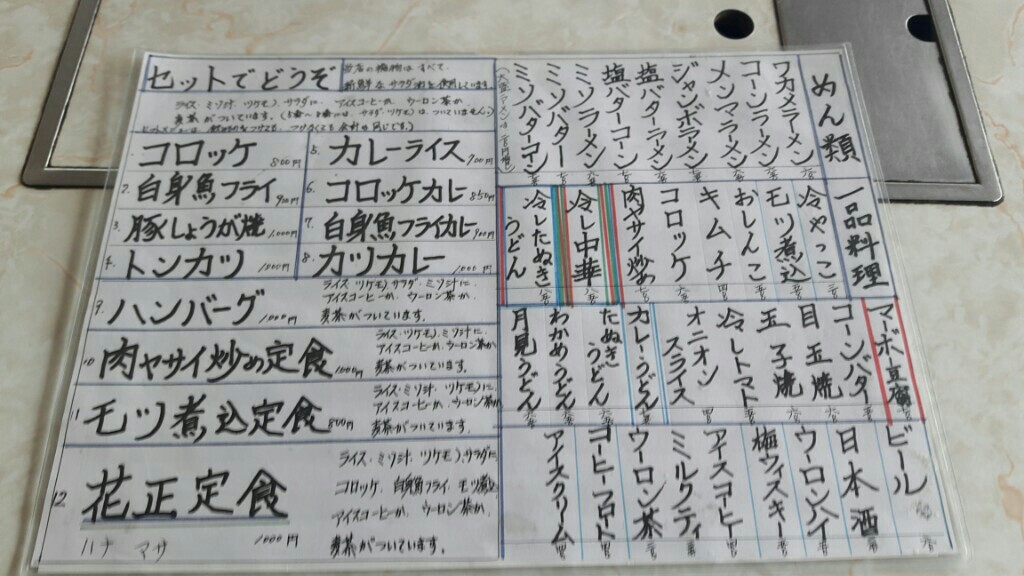 セットでどうぞ
当店の揚物はすべて
新鮮なサラダ油を使用しています
ライス ミソ汁 ツケモノ サラダに アイスコーヒーか ウーロン茶か
麦茶がついています。
1. コロッケ 800円
2. 白身魚フライ 900円
3. 豚しょうが焼 1000円
4. トンカツ 1000円
5. カレーライス 700円
6. コロッケカレー 850円
7. 白身魚フライカレー 900円
8. カツカレー 1000円
9. ハンバーグ 1000円
ライス ツケモノ サラダ ミソ汁に
アイスコーヒーか、ウーロン茶か、
麦茶がついています。
10 肉ヤサイ炒め定食 1000円
ライス・ツケモノ・ミソ汁に、
アイスコーヒーか、ウーロン茶か
麦茶がついています。
11 モツ煮込定食 800円
ライス・ミソ汁 ツケモノに
アイスコーヒーか、ウーロン茶か
麦茶がついています。
12. 花正定食 1000円
ハナ マサ
ライス・ミソ汁 ツケモノ、サラダに
コロッケ、白身魚フライ、モツ煮込
アイスコーヒーか、ウーロン茶か、
麦茶がついています。
めん類
ワカメラーメン
コーンラーメン
メンマラーメン
ジャンボラーメン
塩バターラーメン
塩バターコーン
ミソラーメン
ミソバター
ミソバターコーン
一品料理
冷やっこ
モツ煮込
おしんこ
キムチ
コロッケ
肉ヤサイ炒め
冷し中華
冷したぬきうどん
マーボ豆腐
コーンバター
目玉焼
玉子焼
冷しトマト
オニオンスライス
カレーうどん
たぬきうどん
わかめうどん
月見うどん
ビール
日本酒
ウーロンハイ
梅ウィスキー
アイスコーヒー
ミルクティ
ウーロン茶
コーヒーフロート
アイスクリーム